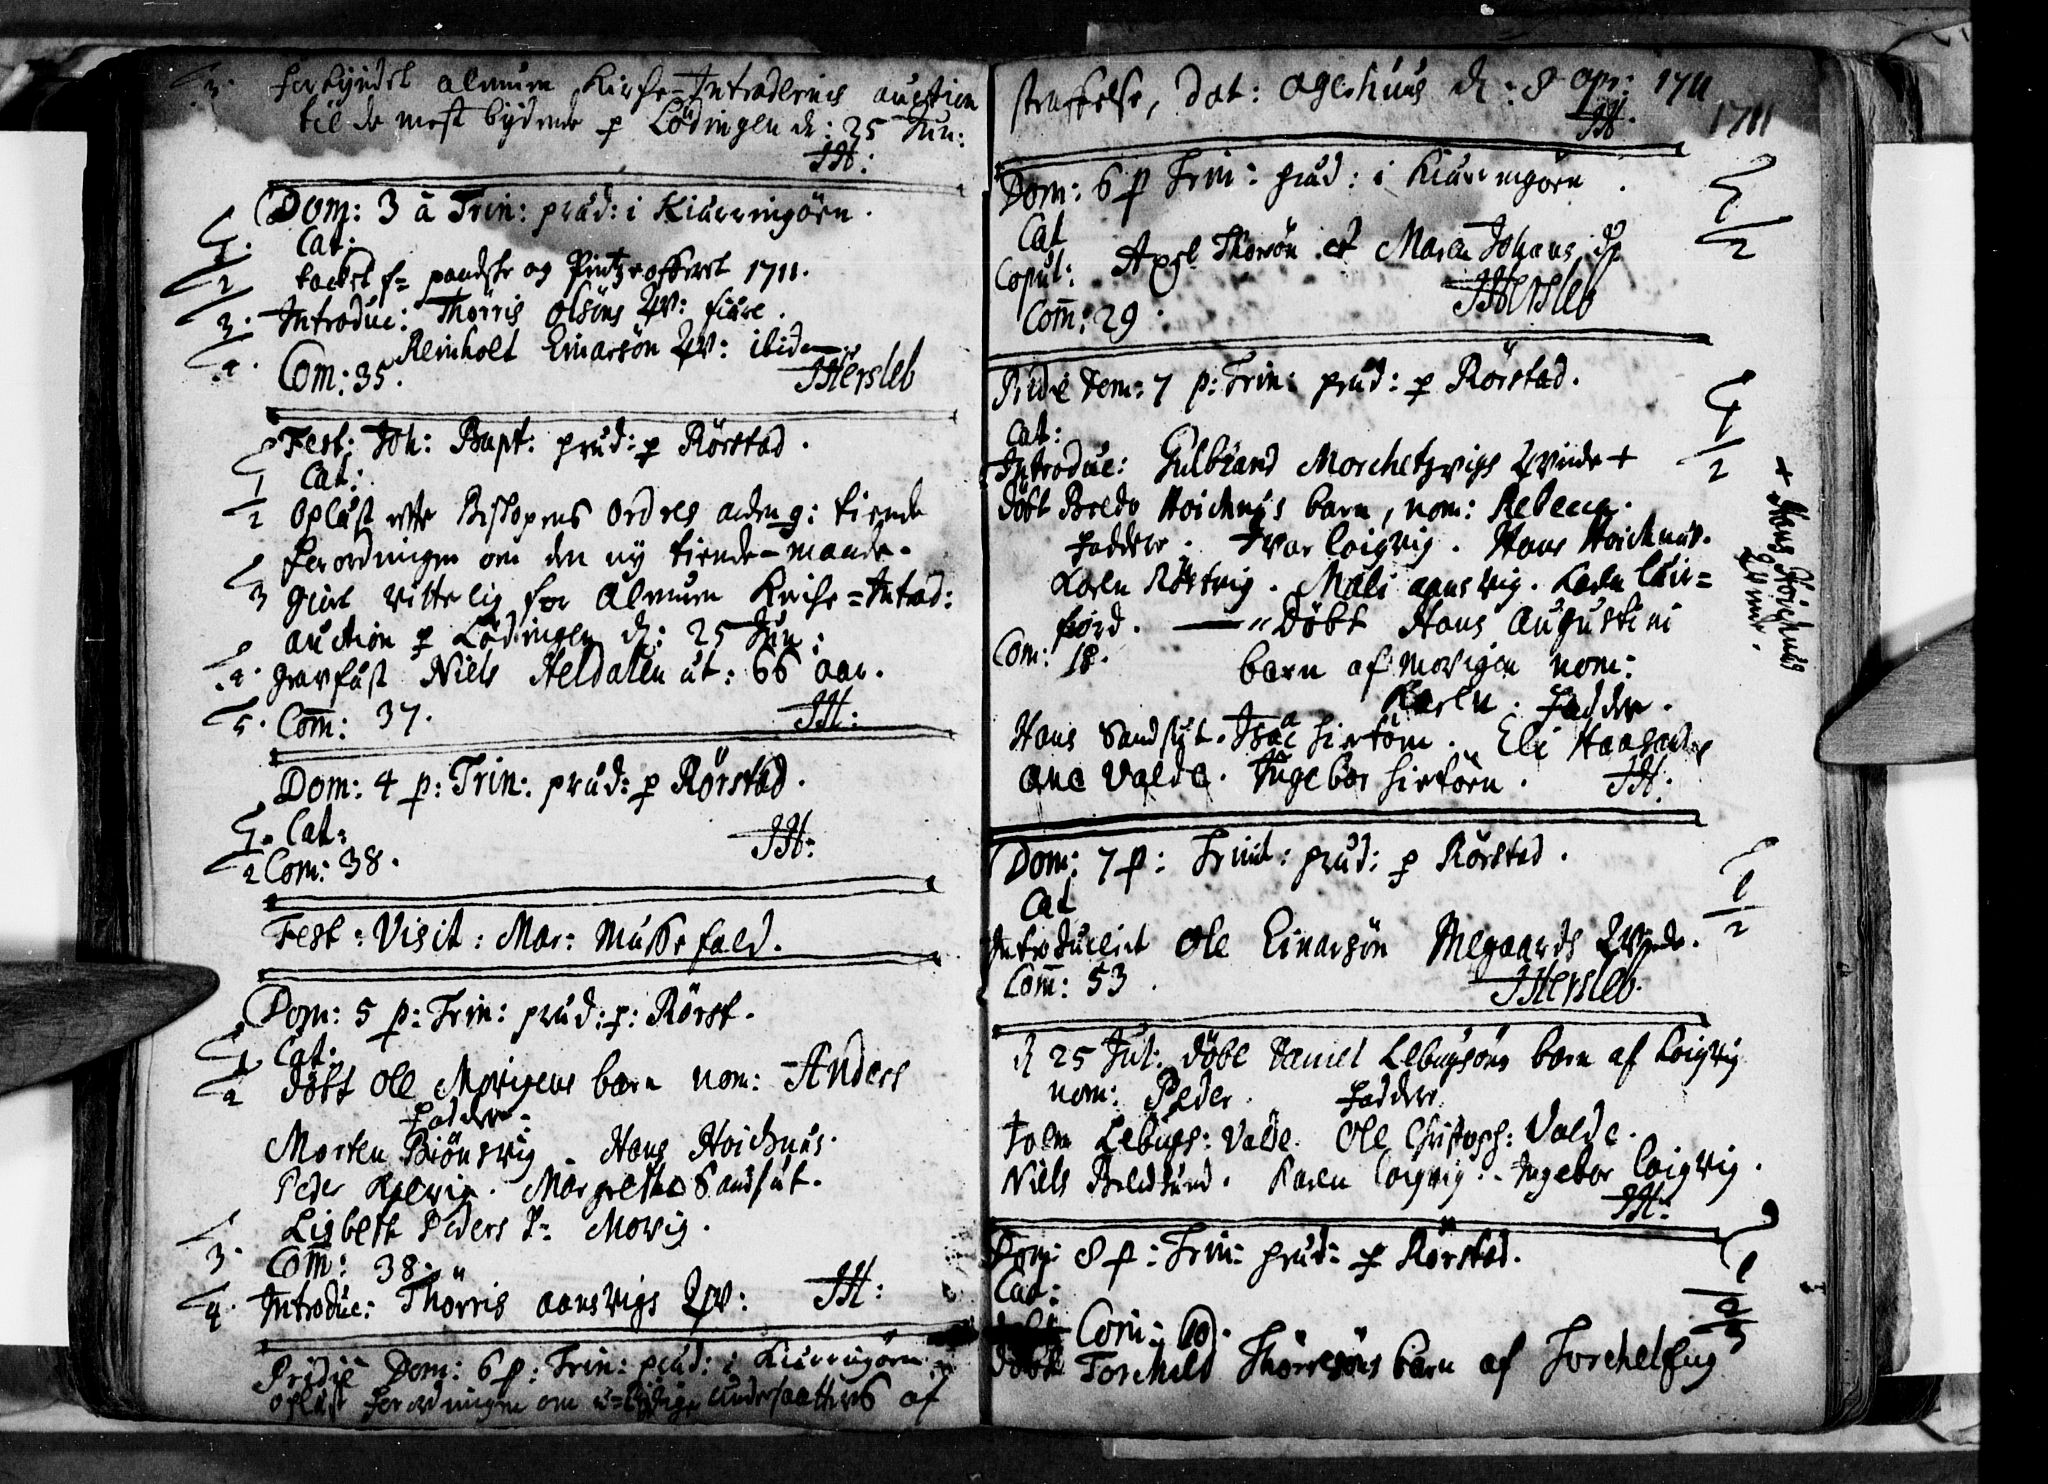 forkyndet almuen Kirche-Intradernis auction
til de mest bydende p Lödingen d: 25 Jun:
JH:
Dom: 3 à Trin: præd: i Kiærringöen.
Cat:
1711.
Introduc: Thörris Olsöns Qv: fiære.
Reinholt Einarsön Qv: ibidem.
Com: 35.
JHersleb
Fest: Joh: Bapt: præd: p Rörstad.
Cat:
Oplæst Bispens Ordres tiende
forordningen om den ny tiende-mande-
giort vitterlig for Almuen Kirche=Intrad:
auction p Lödingen d: 25 Jun:
gravfæst Niels Heldalen æt: 66 aar.
Com: 37.
JH:
Dom: 4 p: Trin: præd: p Rörstad.
Cat:
Com: 38.
JH:
Fest: Visit: Mar: Messefald.
Dom: 5 p: Trin: præd: p: Rörst.
Cat:
döbt Ole Movigens barn nom: Anders
Fadder:
Morten Biönsvig. Hans Hoichnæs.
Peder Kalvig. Margrethe Sandsæt.
Lisbeth Peders D= Movig.
Com: 38.
Introduc: Thörris aansvigs Qv:
JH:
Pridie Dom: 6 p: Trin: præd: i Kiærringöen
oplæst forordningen om undersaatters af
straffelse, Dat: Agerhuus d: 8 Apr: 1711
JH.
1711
Dom: 6 p Trin: præd: i Kiærringöen.
Cat
Copul: Axel Thorsön et Maren Johans D
Com: 29.
JHersleb
Pridie Dom: 7 p: Trin: præd: p Rörstad.
Cat:
Introduc: Gulbrand Morchetzvigs Qvinde +
+ Hans Hoichnæs
Qvinde.
döbt Bredo Hoichnæs barn, nom: Rebecca.
Faddere. Ivar loigvig. Hans Hoichnæs.
Karen Röttvig. Mali aansvig. Karen Leir=
fiord. — Döbt Hans Augustini
Com: 18. barn af movigen nom:
Karen. Fadder.
Hans Sandsæt. Isac hiertöen. Eli
Ane Valde. Ingebor hiertöen. JH:
Dom: 7 p: Trinit: præd: p Rörstad.
Cat
Introducerit Ole Einarsön Megaards Qvinde.
Com: 53.
JHersleb.
d 25 Jul: döbt Daniel Lebugsöns barn af Loigvig
nom: Peder. Faddere
Lebugs: Valde. Ole Christoph: Valde.
Niels Breidsund. Karen Loigvig. Ingebor loigvig.
JH:
Dom: 8 p: Trin: præd: p Rörstad.
Cat:
Com: 60.
döbt Torchild Thörresöns barn af